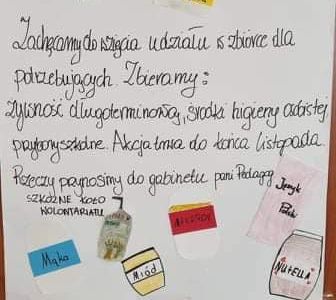 Zachęcamy do wzięcia udziału w zbiórce dla
potrzebujących. Zbieramy:
żywność długoterminową, środki higieny osobistej
przybory szkolne. Akcja trwa do końca listopada.
Rzeczy przynosimy do gabinetu pani Pedagog
SZKOLNE KOŁO
WOLONTARIATU
Język
Polski
Mąka
Miód
NUTELLA